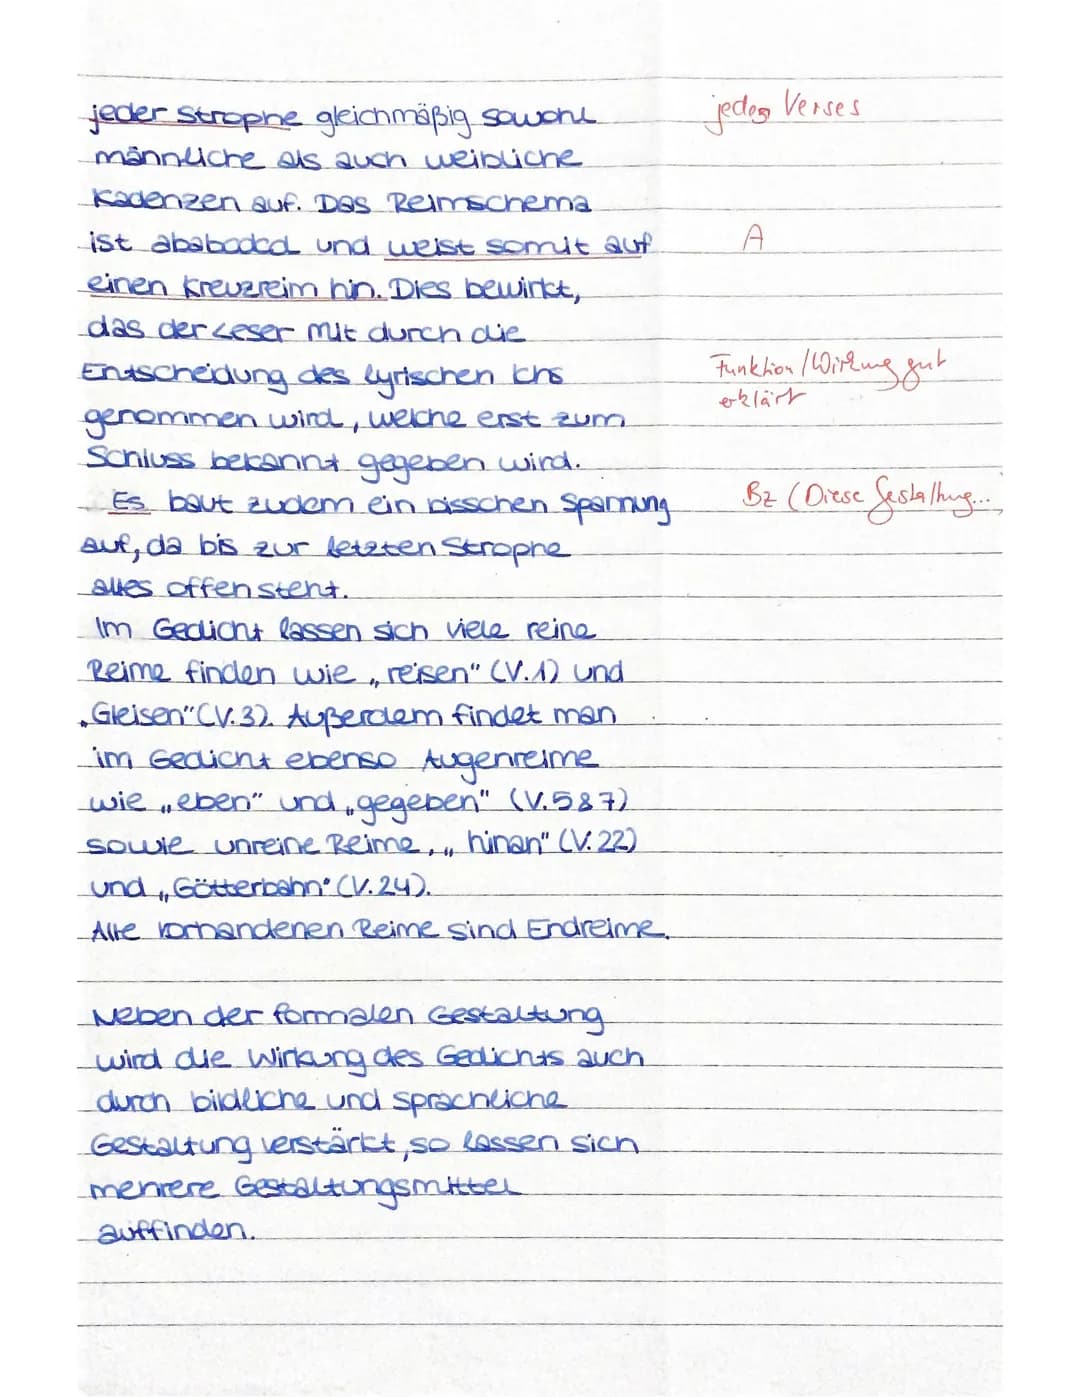 jeder Strophe gleichmäßig sowohl
jedes Verses
männliche als auch weibliche
Kadenzen auf. Das Reimschema
ist ababcdcd und weist somit auf
A
einen Kreuzreim hin. Dies bewirkt,
das der Leser mit durch die
Entscheidung des lyrischen Ichs
Funktion/Wirkung gut
erklärt
genommen wird, welche erst zum
Schluss bekannt gegeben wird.
Es baut zudem ein bisschen Spannung
Bz (Diese Gestaltung...
auf, da bis zur letzten Strophe
alles offen steht.
Im Gedicht lassen sich viele reine
Reime finden wie „reisen" (V.1) und
„Gleisen" (V.3). Außerdem findet man
im Gedicht ebenso Augenreime
wie „eben" und „gegeben" (V.5&7)
sowie unreine Reime, „hinan" (V.22)
und „Götterbahn" (V.24).
Alle vorhandenen Reime sind Endreime.
Neben der formalen Gestaltung
wird die Wirkung des Gedichts auch
durch bildliche und sprachliche
Gestaltung verstärkt, so lassen sich
mehrere Gestaltungsmittel
auffinden.